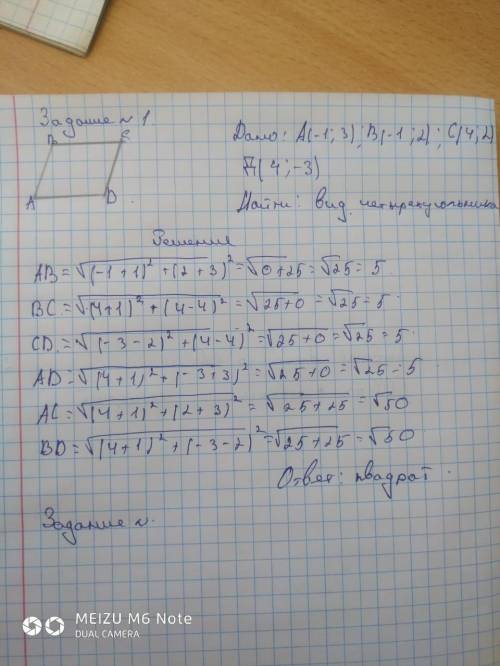 Задание № 1
B C
A D
Дано: A(-1; 3); B(-1; 2); C(4; 2)
Д(4; -3)
Найти: вид четырехугольника
Решения
AB = √(-1+1)² + (2+3)² = √0+25 = √25 = 5
BC = √(4+1)² + (4-4)² = √25+0 = √25 = 5
CD = √(-3-2)² + (4-4)² = √25+0 = √25 = 5
AD = √(4+1)² + (-3+3)² = √25+0 = √25 = 5
AC = √(4+1)² + (2+3)² = √25+25 = √50
BD = √(4+1)² + (-3-2)² = √25+25 = √50
Ответ: квадрат
Задание №
MEIZU M6 Note
DUAL CAMERA